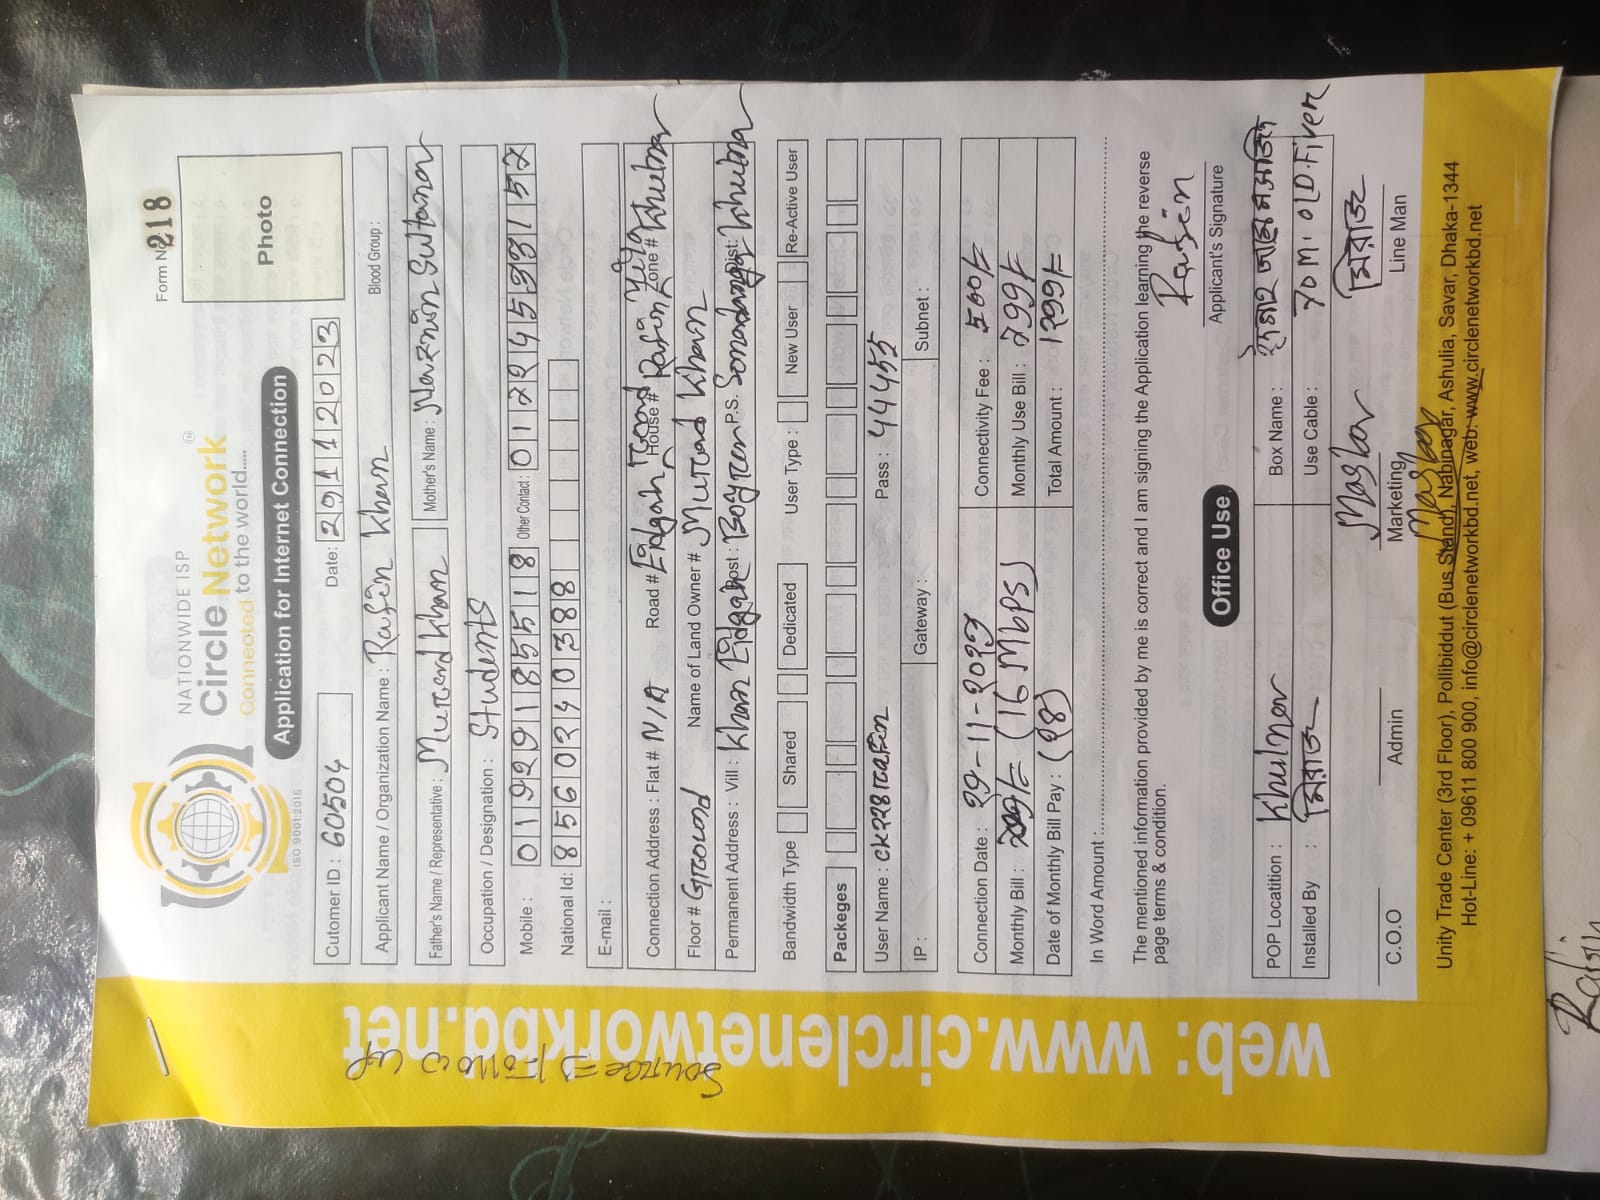 Form No 218
NATIONWIDE ISP
Circle Network
Connected to the world.....
ISO 9001:2015
Application for Internet Connection
Photo
Cutomer ID : 60504 Date: 29112023
Applicant Name / Organization Name : Rafin Khan Blood Group :
Father's Name / Representative : Murad Khan Mother's Name : Naznin Sultana
Occupation / Designation : Students
Mobile : Other Contact :
National Id: 8560240388
E-mail :
Connection Address : Flat # N/A Road # Eidgah Road House # Rafin Villa Zone # Khulna
Floor # Ground Name of Land Owner # Murad Khan
Permanent Address : Vill : Khan Eidgah Post : P.S. Dist: Khulna
Bandwidth Type Shared Dedicated User Type : New User Re-Active User
Packeges
User Name : Pass : 44455
IP : Gateway : Subnet :
Connection Date : 29-11-2023 Connectivity Fee : 500/=
Monthly Bill : (16 Mbps) Monthly Use Bill : 799/=
Date of Monthly Bill Pay : Total Amount : 1299/=
In Word Amount :
The mentioned information provided by me is correct and I am signing the Application learning the reverse
page terms & condition.
Rafin
Applicant's Signature
Office Use.
POP Locatition : Khulna Box Name :
Installed By : মিরাজ Use Cable : 70 m. OLD. Fiver
মিরাজ
C.O.O Admin Marketing Line Man
Unity Trade Center (3rd Floor), Pollibiddut (Bus Stand), Nabinagar, Ashulia, Savar, Dhaka-1344
Hot-Line: + 09611 800 900, info@circlenetworkbd.net, web: www.circlenetworkbd.net
web: www.circlenetworkbd.net
Source => Follow up
Rafin